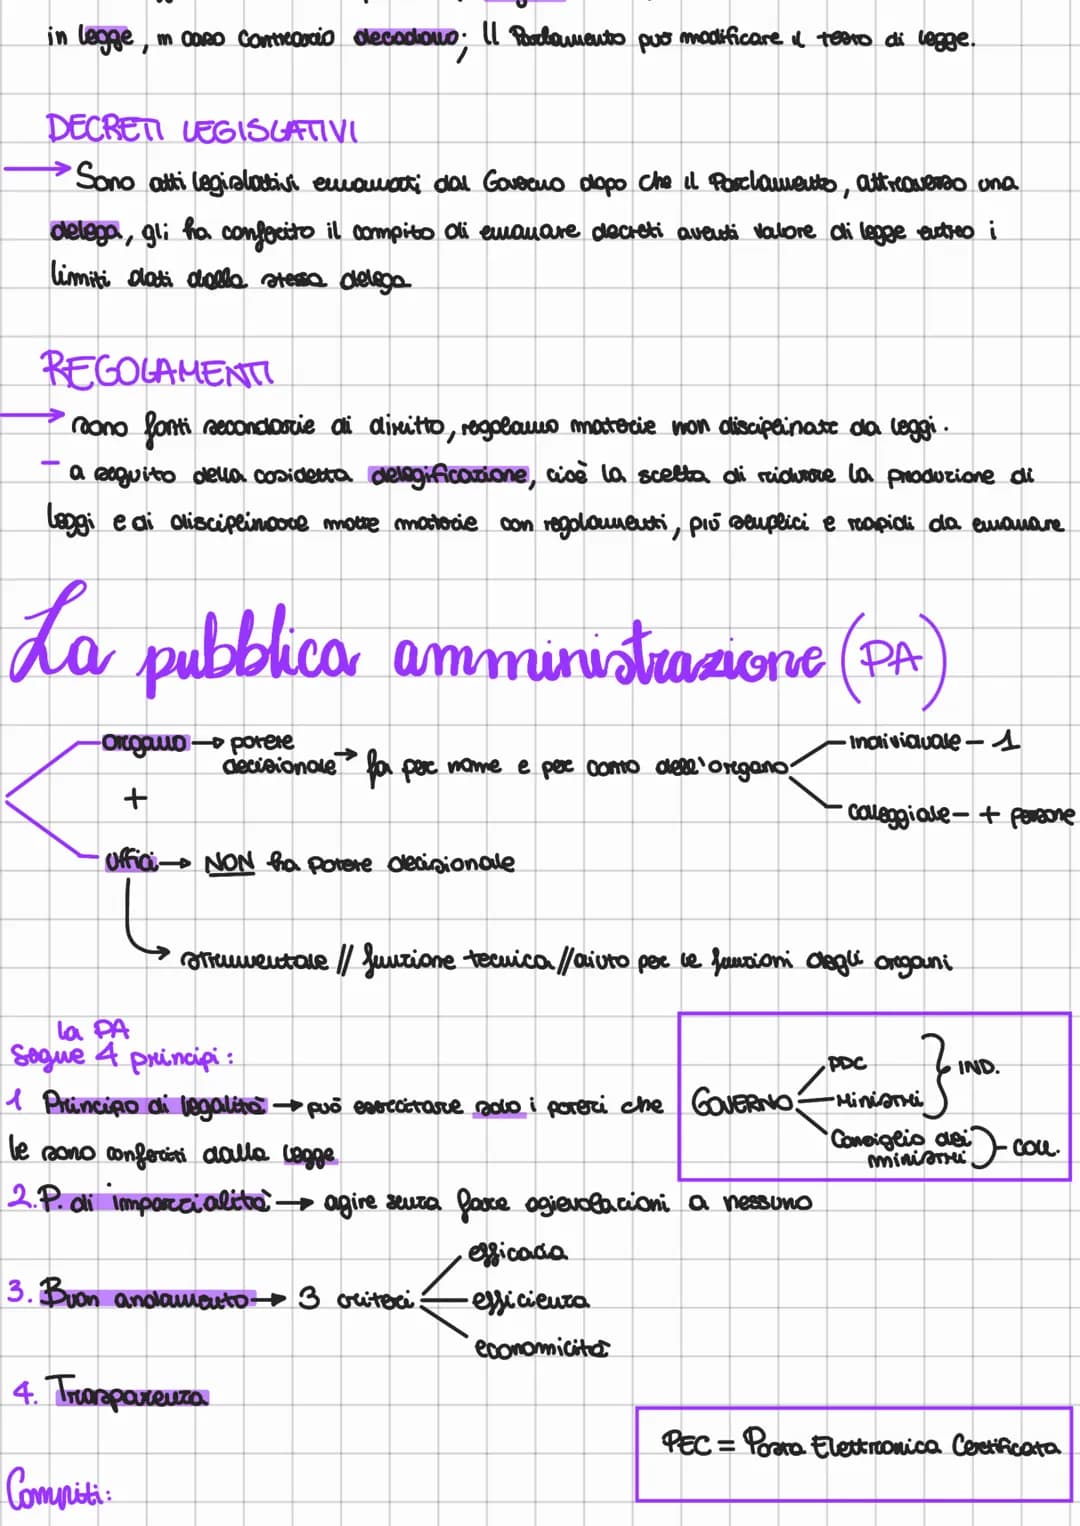 in legge, in caso contrario decadono; Il Parlamento può modificare il testo di legge.
DECRETI LEGISLATIVI
→ Sono atti legislativi emanati dal Governo dopo che il Parlamento, attraverso una
delega, gli ha conferito il compito di emanare decreti aventi valore di legge entro i
limiti dati dalla stessa delega
REGOLAMENTI
→ sono fonti secondarie di diritto, regolano materie non disciplinate da leggi.
- a seguito della cosidetta delegificazione, cioè la scelta di ridurre la produzione di
leggi e di disciplinare molte materie con regolamenti, più semplici e rapidi da emanare
La pubblica amministrazione (PA)
organo → potere decisionale → fa per nome e per conto dell'organo
individuale - 1
collegiale - + persone
+
Uffici → NON ha potere decisionale
→ strumentale // funzione tecnica // aiuto per le funzioni degli organi
la PA
Segue 4 principi:
1 Principio di legalità → può esercitare solo i poteri che
le sono conferiti dalla legge
GOVERNO
PDC
Ministri
} IND.
Consiglio dei ministri
} - COLL.
2. P. di imparzialità → agire senza fare agevolazioni a nessuno
3. Buon andamento → 3 criteri
efficacia
efficienza
economicità
4. Trasparenza
PEC = Posta Elettronica Certificata
Compiti: